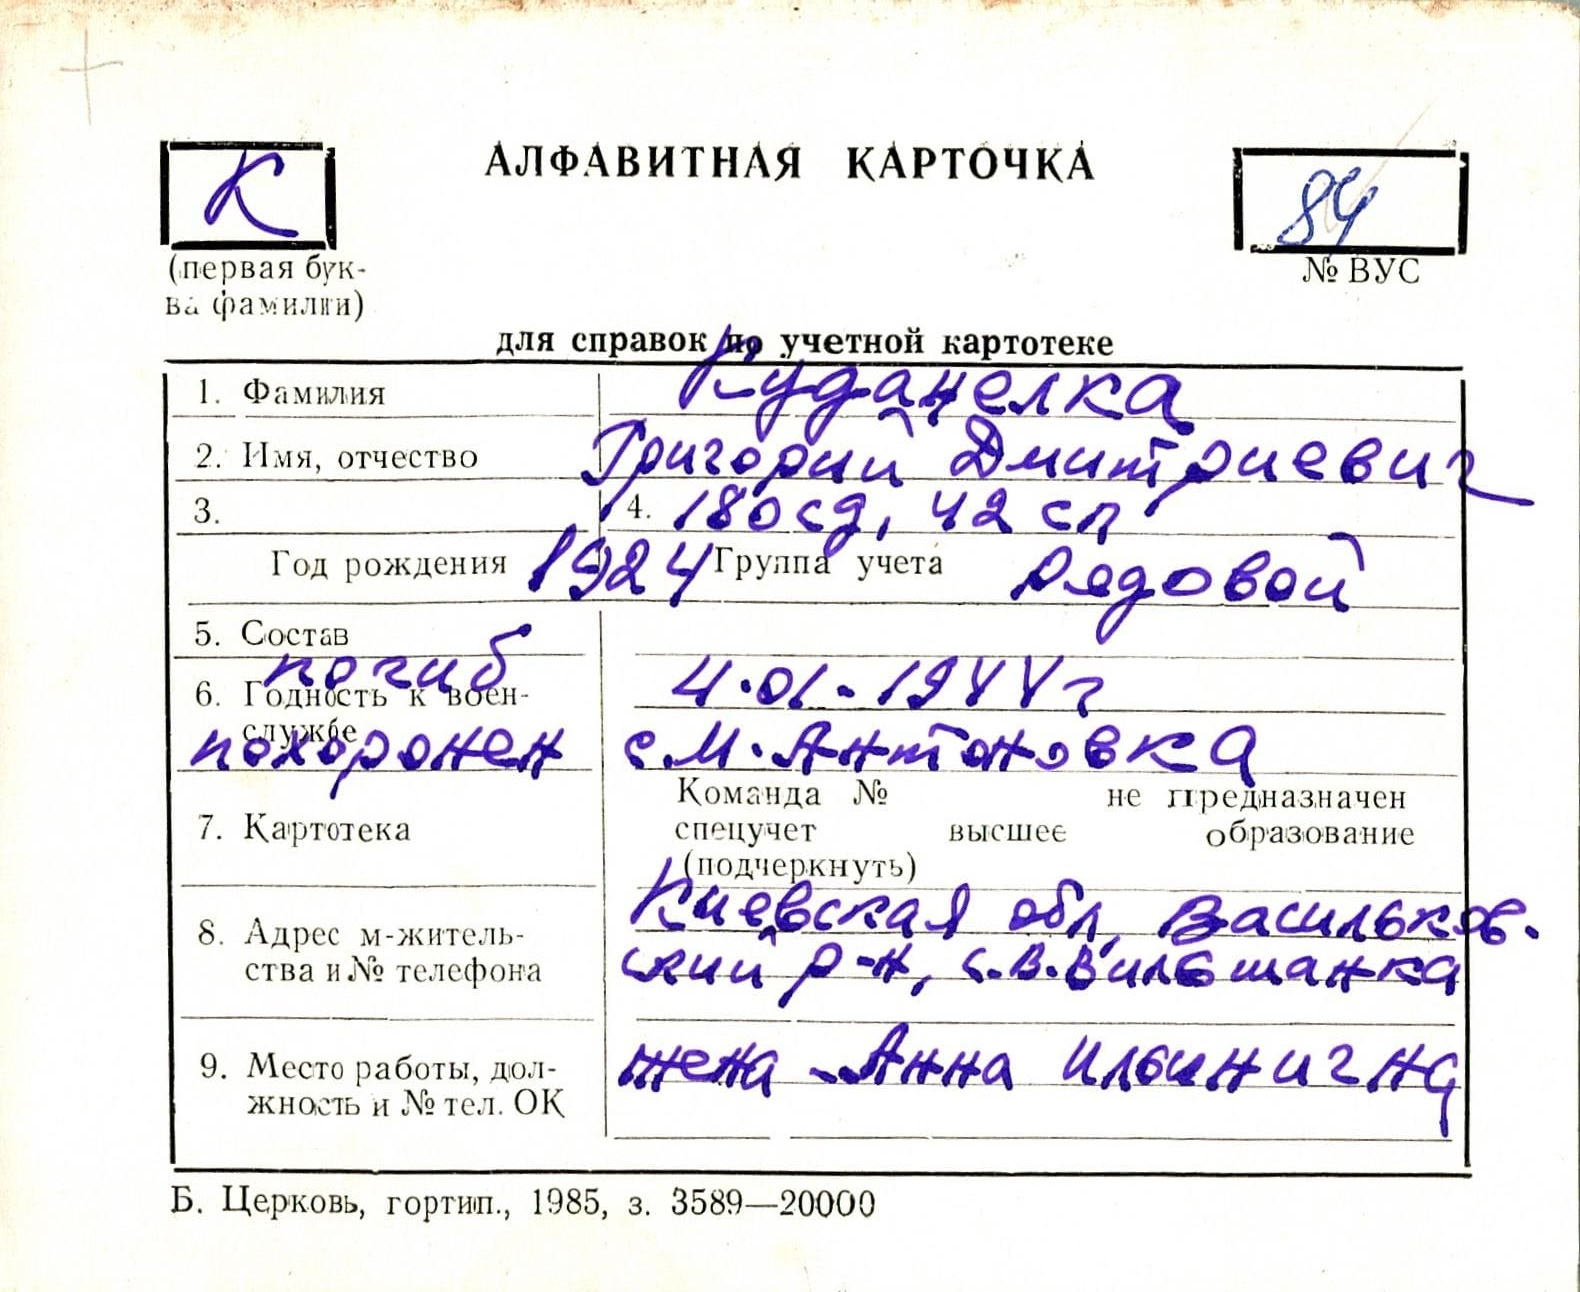 К
АЛФАВИТНАЯ КАРТОЧКА
84
(первая бук-
ва фамилии)
№ ВУС
для справок по учетной картотеке
1. Фамилия Куданелка
2. Имя, отчество Григорий Дмитриевич
3. 4. 180 сд, 42 сп
Год рождения 1924 Группа учета Рядовой
5. Состав
погиб 4.01.1944 г
6. Годность к воен-
службе
похоронен с. М. Антоновка
Команда № не предназначен
7. Картотека спецучет высшее образование
(подчеркнуть)
8. Адрес м-житель- Киевская обл, Васильков.
ства и № телефона ский р-н, с. В. Вильшанка
9. Место работы, дол- жена - Анна Ильинична
жность и № тел. ОК
Б. Церковь, гортип., 1985, з. 3589—20000